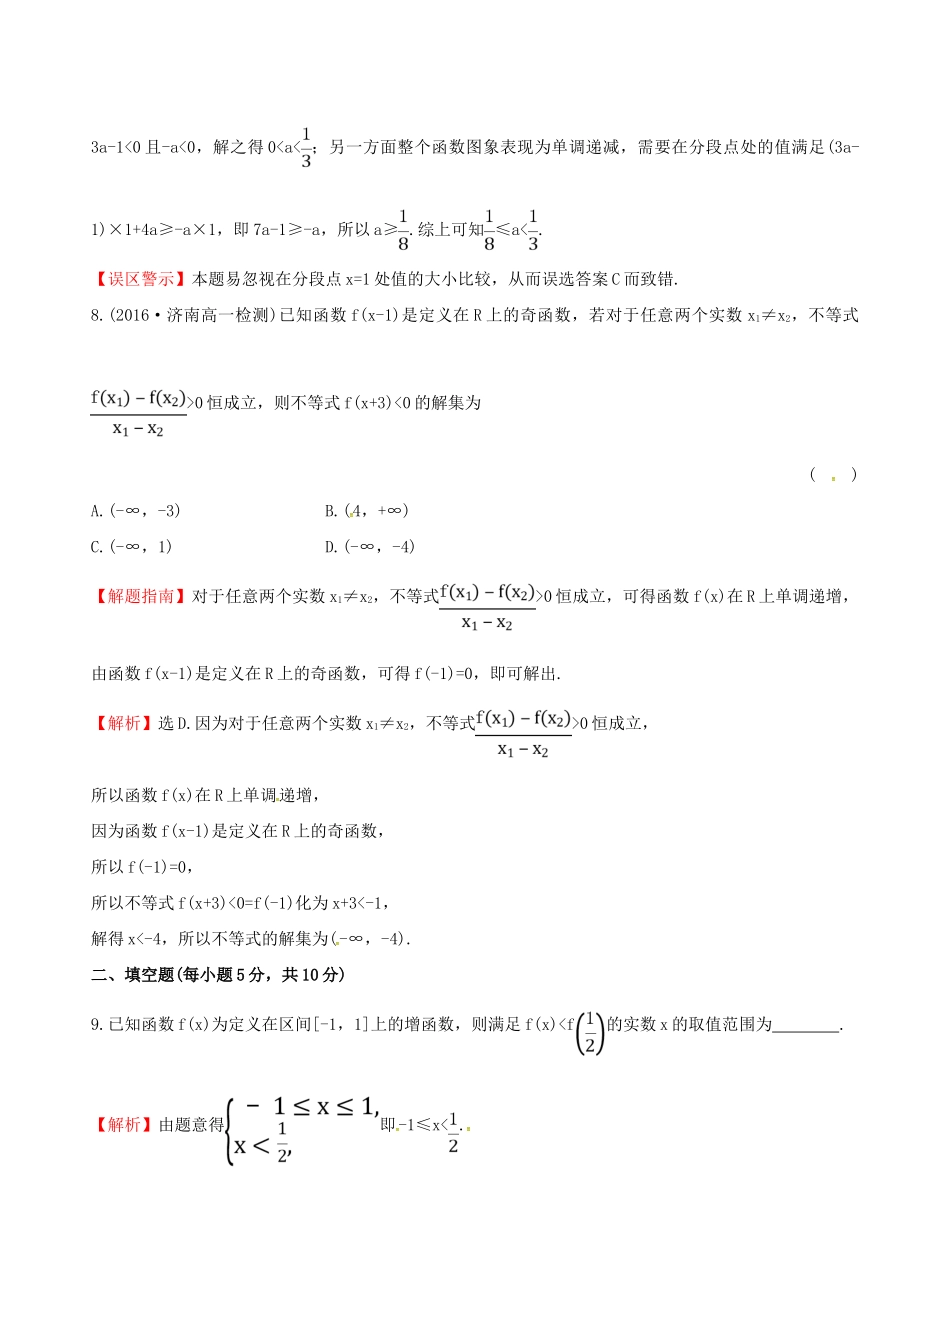 3a-1<0 且-a<0，解之得 0<a<1/3；另一方面整个函数图象表现为单调递减，需要在分段点处的值满足(3a-
1)×1+4a≥-a×1，即 7a-1≥-a，所以 a≥1/8.综上可知1/8≤a<1/3.
【误区警示】本题易忽视在分段点 x=1 处值的大小比较，从而误选答案 C 而致错.
8.(2016·济南高一检测)已知函数 f(x-1)是定义在 R 上的奇函数，若对于任意两个实数 x₁≠x₂，不等式
(f(x₁)-f(x₂))/(x₁-x₂)>0 恒成立，则不等式 f(x+3)<0 的解集为
( )
A.(-∞，-3) B.(4，+∞)
C.(-∞，1) D.(-∞，-4)
【解题指南】对于任意两个实数 x₁≠x₂，不等式(f(x₁)-f(x₂))/(x₁-x₂)>0 恒成立，可得函数 f(x)在 R 上单调递增，
由函数 f(x-1)是定义在 R 上的奇函数，可得 f(-1)=0，即可解出.
【解析】选 D.因为对于任意两个实数 x₁≠x₂，不等式(f(x₁)-f(x₂))/(x₁-x₂)>0 恒成立，
所以函数 f(x)在 R 上单调递增，
因为函数 f(x-1)是定义在 R 上的奇函数，
所以 f(-1)=0，
所以不等式 f(x+3)<0=f(-1)化为 x+3<-1，
解得 x<-4，所以不等式的解集为(-∞，-4).
二、填空题(每小题 5 分，共 10 分)
9.已知函数 f(x)为定义在区间[-1，1]上的增函数，则满足 f(x)<f(1/2)的实数 x 的取值范围为________.
【解析】由题意得{-1≤x≤1, x<1/2, 即-1≤x<1/2.